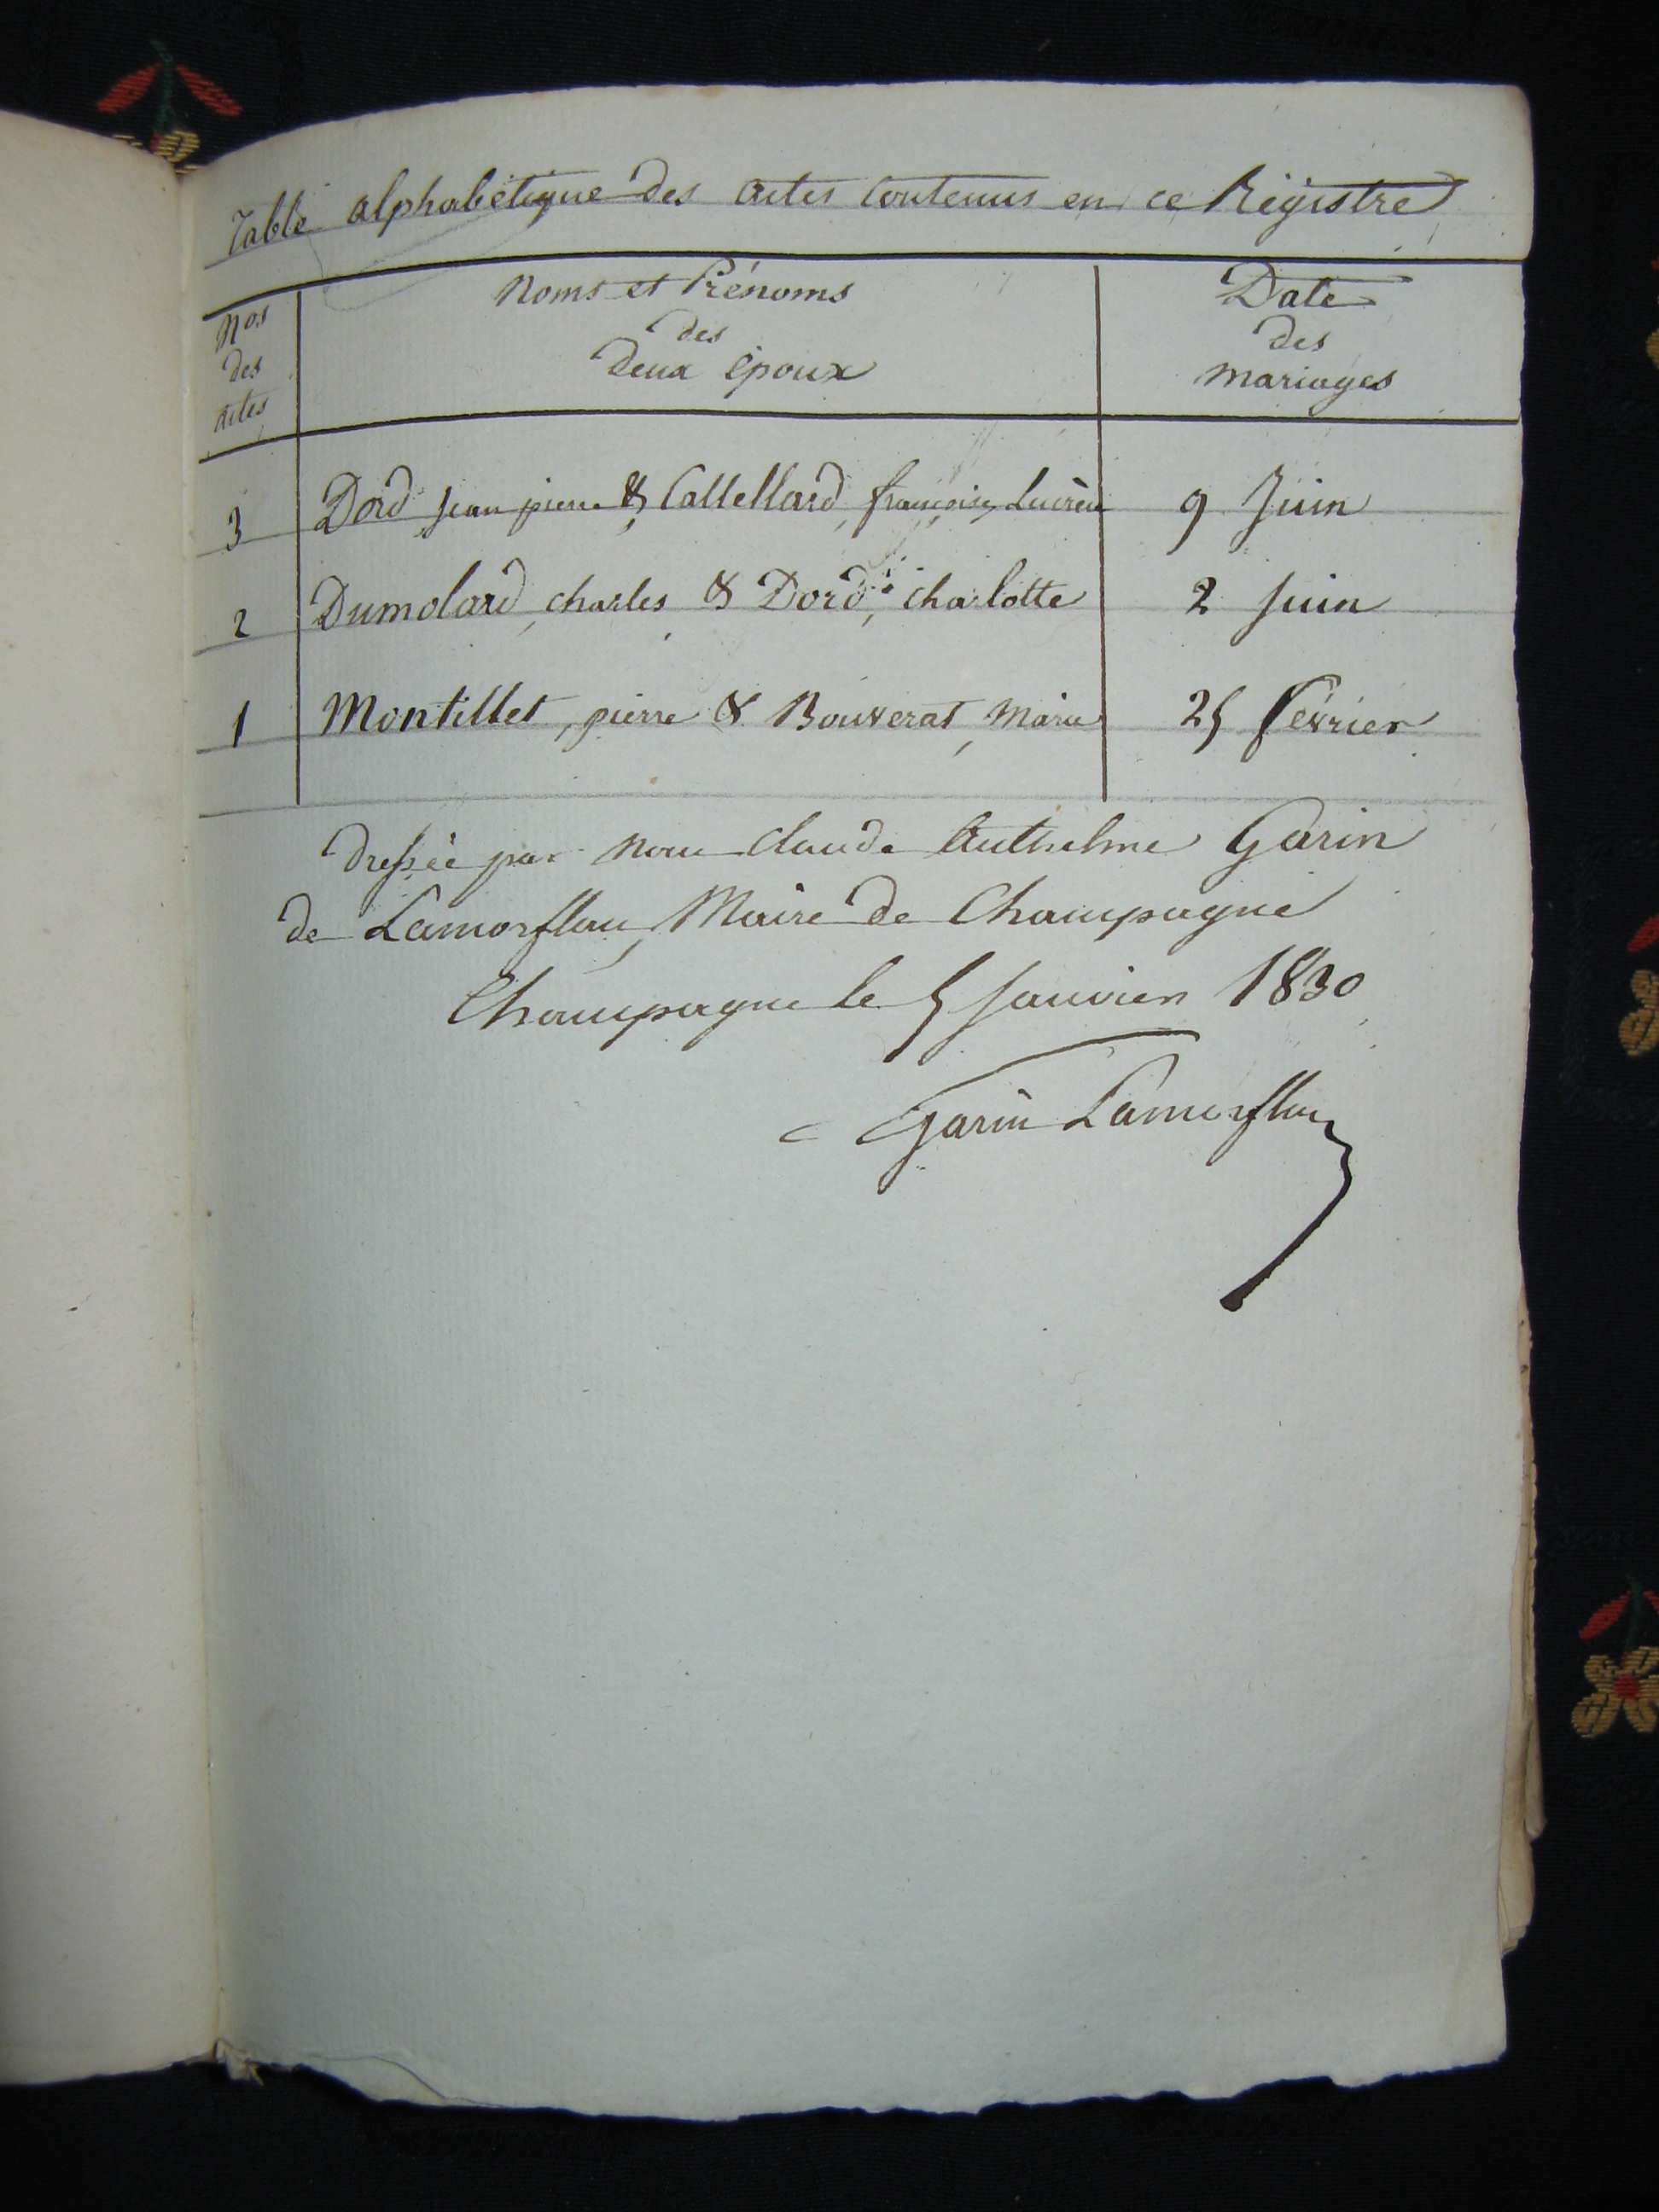 Table alphabétique des actes contenus en ce Régistre
Nos des actes | Noms et Prénoms des deux époux | Date des mariages
3 | Dord Jean pierre & Callellard, françoise Lucrèce | 9 Juin
2 | Dumolard, charles & Dord, charlotte | 2 Juin
1 | Montillet, pierre & Bouverat, Marie | 25 février
dressée par nous Claude Anthelme Garin
de Lamorflan, Maire de Champagne
Champagne le 5 Janvier 1830
Garin Lamorflan